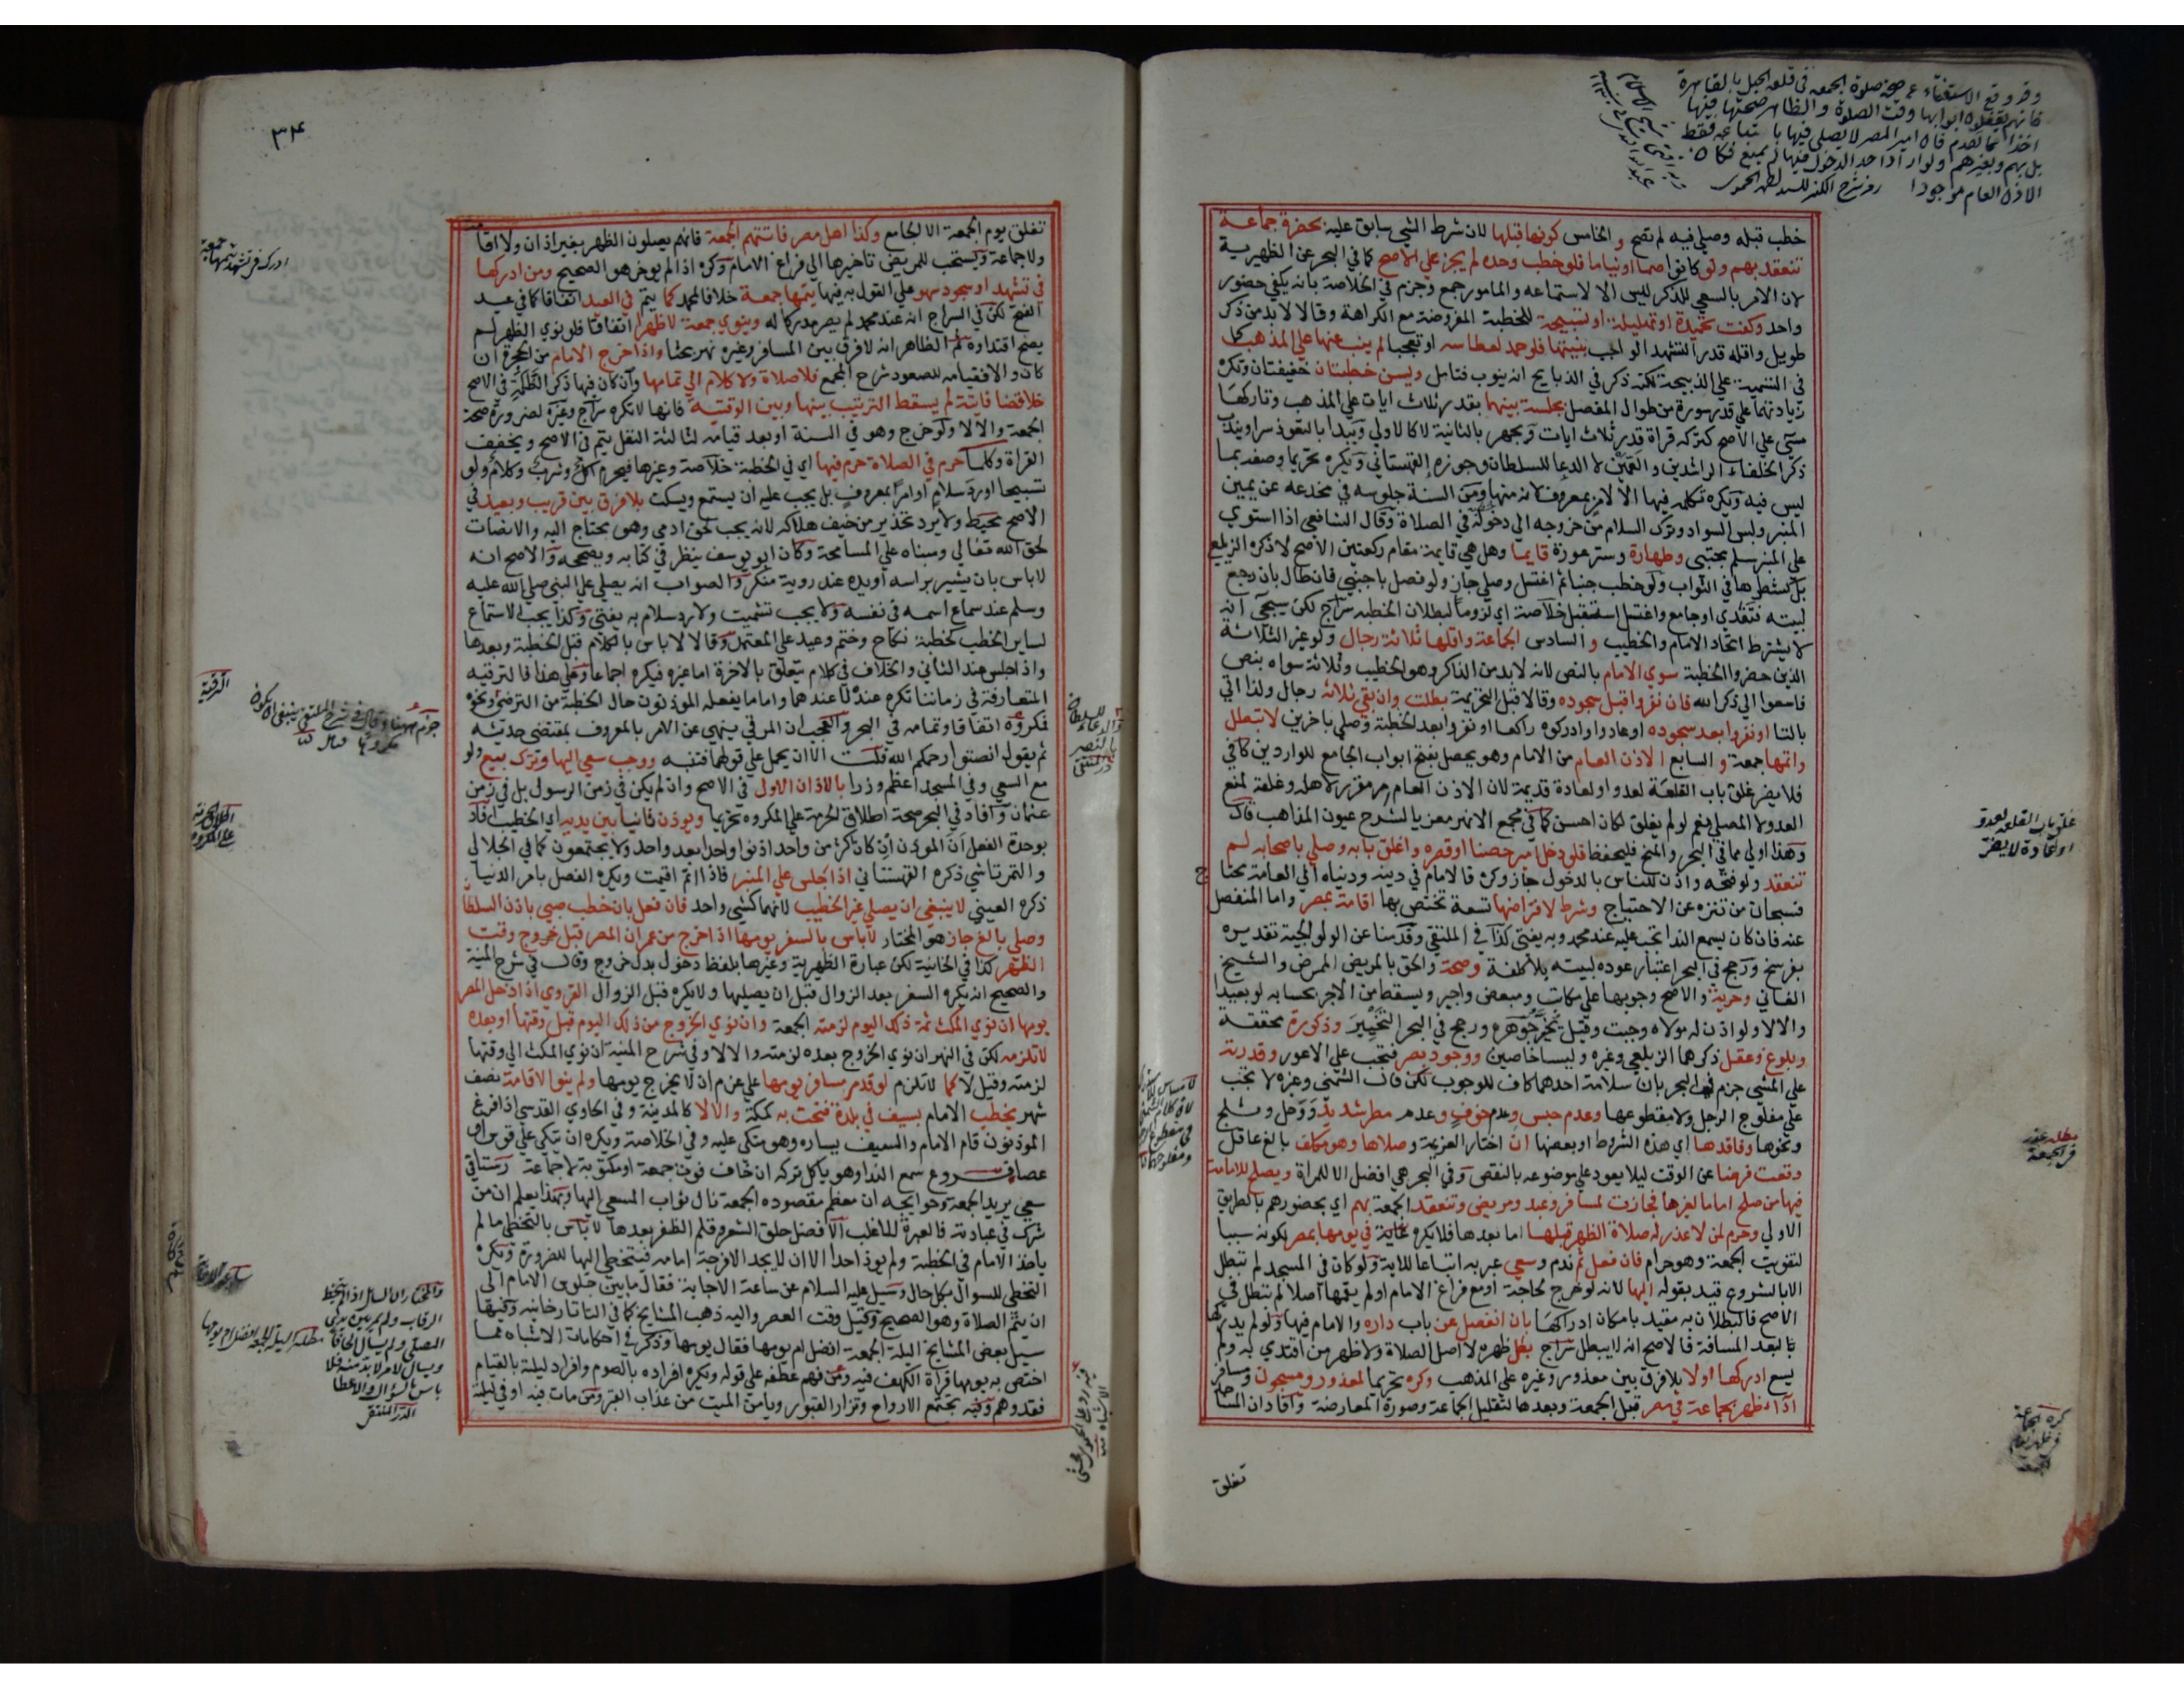 وقد وقع الاستفتاء عن صحة صلوة الجمعة في قلعة الجبل بالقاهرة
فانهم يقفلون ابوابها وقت الصلوة والظاهر صحتها فيها
اخذا مما تقدم فان امير المصر لا يصلي فيها باتباعه فقط
بل بهم وبغيرهم ولو اراد احد الدخول فيها لم يمنع فكان
الاذن العام موجودا
خطب قبله وصلي فيه لم تصح و الخامس كونها قبلها لان شرط الشي سابق عليه بحضرة جماعة
تنعقد بهم ولو كانوا صما او نياما فلو خطب وحده لم يجز علي الاصح كما في البحر عن الظهيرية
لان الامر بالسعي للذكر ليس الا لاستماعه والمامور جمع وجزم في الخلاصة بانه يكفي حضور
واحد وكفت تحميدة او تهليلة او تسبيحة للخطبة المفروضة مع الكراهة وقالا لا بد من ذكر
طويل واقله قدر التشهد الواجب بنيتها فلو حمد لعطاسه او تعجبا لم ينب عنها علي المذهب كما
في التسمية علي الذبيحة لكنه ذكر في الذبايح انه ينوب فتامل ويسن خطبتان خفيفتان وتكره
زيادتهما علي قدر سورة من طوال المفصل بجلسة بينهما بقدر ثلاث ايات علي المذهب وتاركها
مسي علي الاصح كتركه قراة قدر ثلاث ايات ويجهر بالثانية لا كالاولي ويبدا بالتعوذ سرا ويندب
ذكر الخلفاء الراشدين والعمين لا الدعا للسلطان وجوزه القهستاني ويكره تحريما وصفه بما
ليس فيه ويكره تكلمه فيها الا لامر بمعروف لانه منها ومن السنة جلوسه في مخدعه عن يمين
المنبر ولبس السواد وترك السلام من خروجه الي دخوله في الصلاة وقال الشافعي اذا استوي
علي المنبر سلم مجتبي وطهارة وستر عورة قايما وهل هي قايمة مقام ركعتين الاصح لا ذكره الزيلعي
بل كشطرها في الثواب ولو خطب جنبا ثم اغتسل وصلي جاز ولو فصل باجنبي فان طال بان رجع
لبيته فتغدي او جامع واغتسل استقبل خلاصة اي لزوما لبطلان الخطبه سراج لكن سيجي انه
لا يشترط اتحاد الامام والخطيب و السادس الجماعة واقلها ثلاثة رجال ولو غير الثلاثة
الذين حضروا الخطبة سوي الامام بالنص لانه لا بد من الذاكر وهو الخطيب وثلاثة سواه بنص
فاسعوا الي ذكر الله فان نفروا قبل سجوده وقالا قبل التحريمة بطلت وان بقي ثلاثة رجال ولذا اتي
بالتا او نفروا بعد سجوده او عادوا وادركوه راكعا او نفروا بعد الخطبة وصلي باخرين لا تبطل
واتمها جمعة و السابع الاذن العام من الامام وهو يحصل بفتح ابواب الجامع للواردين كافي
فلا يضر غلق باب القلعة لعدو او لعادة قديمة لان الاذن العام مقرر لاهله وغلقه لمنع
العدو لا المصلي نعم لو لم يغلق لكان احسن كما في مجمع الانهر معزيا لشرح عيون المذاهب قال
وهذا اولي مما في البحر والمنح فليحفظ فلو دخل امير حصنا او قصره واغلق بابه وصلي باصحابه لم
تنعقد ولو فتحه واذن للناس بالدخول جاز وكره فالامام في دينه ودنياه الي العامة محتاج
فسبحان من تنزه عن الاحتياج وشرط لافتراضها تسعة تختص بها اقامة بمصر واما المنفصل
عنه فان كان يسمع الندا تجب عليه عند محمد وبه يفتي كذا في الملتقي وقدمنا عن الولوالجية تقديره
بفرسخ ورجح في البحر اعتبار عوده لبيته بلا كلفة وصحة والحق بالمريض الممرض والشيخ
الفاني وحرية والاصح وجوبها علي مكاتب ومبعض واجير ويسقط من الاجر بحسابه لو بعيدا
والا لا ولو اذن له مولاه وجبت وقيل يخير جوهرة ورجح في البحر التخيير وذكورة محققة
وبلوغ وعقل ذكرهما الزيلعي وغيره وليسا خاصين ووجود بصر فتجب علي الاعور وقدرته
علي المشي جزم في البحر بان سلامة احدهما كاف للوجوب لكن قال الشمني وغيره لا تجب
علي مفلوج الرجل ولا مقطوعها وعدم حبس وعدم خوف وعدم مطر شديد ووحل وثلج
ونحوها وفاقدها اي هذه الشروط او بعضها ان اختار العزيمة وصلاها وهو مكلف بالغ عاقل
وقعت فرضا عن الوقت ليلا يعود علي موضوعه بالنقص وفي البحر هي افضل الا للمراة ويصلح للامامة
فيها من صلح اماما لغيرها فجازت لمسافر وعبد ومريض وتنعقد الجمعة بهم اي بحضورهم بالطريق
الاولي وحرم لمن لا عذر له صلاة الظهر قبلها اما بعدها فلا يكره غاية في يومها بمصر لكونه سببا
لتفويت الجمعة وهو حرام فان فعل ثم ندم وسعي عبر به اتباعا للاية ولو كان في المسجد لم تبطل
الا بالشروع قيد بقوله اليها لانه لو خرج لحاجة او مع فراغ الامام او لم يقمها اصلا لم تبطل في
الاصح فالبطلان به مقيد بامكان ادراكها بان انفصل عن باب داره والامام فيها ولو لم يدركها
بالبعد المسافة فالاصح انه لا يبطل سراج بطل ظهره لا اصل الصلاة ولا ظهر من اقتدي به ولم
يسع ادركها او لا بلا فرق بين معذور وغيره علي المذهب وكره تحريما لمعذور ومسجون ومسافر
اداء ظهر بجماعة في مصر قبل الجمعة وبعدها لتقليل الجماعة وصورة المعارضة وافاد ان المساجد
تغلق
غلق باب القلعة لعدو
او لعادة لا يضر
٣٤
تغلق يوم الجمعة الا الجامع وكذا اهل مصر فاتتهم الجمعة فانهم يصلون الظهر بغير اذان ولا اقامة
ولا جماعة ويستحب للمريض تاخيرها الي فراغ الامام وكره اذا لم يوخر هو الصحيح ومن ادركها
في تشهد او سجود سهو علي القول به فيها يتمها جمعة خلافا لمحمد كما يتم في العيد اتفاقا كما في عيد
الفتح لكن في السراج انه عند محمد لم يصر مدركا له وينوي جمعة لا ظهرا اتفاقا فلو نوي الظهر لم
يصح اقتداوه ثم الظاهر انه لا فرق بين المسافر وغيره نهر بحثا واذا خرج الامام من الحجرة ان
كان والا فقيامه للصعود شرح المجمع فلا صلاة ولا كلام الي تمامها وان كان فيها ذكر الظلمة في الاصح
خلا قضا فائتة لم يسقط الترتيب بينها وبين الوقتية فانها لا تكره سراج وغيره لضرورة صحة
الجمعة والا لا ولو خرج وهو في السنة او بعد قيامه لثالثة النفل يتم في الاصح ويخفف
القراة وكلما حرم في الصلاة حرم فيها اي في الخطبة خلاصة وغيرها فيحرم اكل وشرب وكلام ولو
تسبيحا او رد سلام او امر بمعروف بل يجب عليه ان يستمع ويسكت بلا فرق بين قريب وبعيد في
الاصح محيط ولا يرد تحذير من خيف هلاكه لانه يجب لحق ادمي وهو محتاج اليه والانصات
لحق الله تعالي ومبناه علي المسامحة وكان ابو يوسف ينظر في كتابه ويصححه والاصح انه
لا باس بان يشير براسه او يده عند روية منكر والصواب انه يصلي علي النبي صلي الله عليه
وسلم عند سماع اسمه في نفسه ولا يجب تشميت ولا رد سلام به يفتي وكذا يجب الاستماع
لساير الخطب كخطبة نكاح وختم وعيد علي المعتمد وقالا لا باس بالكلام قبل الخطبة وبعدها
واذا جلس عند الثاني والخلاف في كلام يتعلق بالاخرة اما غيره فيكره اجماعا وعلي هذا فالترقيه
المتعارفة في زماننا تكره عنده لا عندهما واما ما يفعله الموذنون حال الخطبة من الترضي ونحوه
فمكروه اتفاقا وتمامه في البحر والعجب ان المرقي ينهي عن الامر بالمعروف بمقتضي حديثه
ثم يقول انصتوا رحمكم الله قلت الا ان يحمل علي قولهما فتنبه ووجب سعي اليها وترك بيع ولو
مع السعي وفي المسجد اعظم وزرا بالاذان الاول في الاصح وان لم يكن في زمن الرسول بل في زمن
عثمان وافاد في البحر صحة اطلاق الحرمة علي المكروه تحريما ويوذن ثانيا بين يديه اي الخطيب افاد
بوحدة الفعل ان الموذن ان كان اكثر من واحد اذنوا واحدا بعد واحد ولا يجتمعون كما في الجلالي
والتمرتاشي ذكره القهستاني اذا جلس علي المنبر فاذا اتم اقيمت ويكره الفصل بامر الدنيا
ذكره العيني لا ينبغي ان يصلي غير الخطيب لانهما كشي واحد فان فعل بان خطب صبي باذن السلطان
وصلي بالغ جاز هو المختار لا باس بالسفر يومها اذا خرج من عمران المصر قبل خروج وقت
الظهر كذا في الخانية لكن عبارة الظهيرية وغيرها بلفظ دخول بدل خروج وقال في شرح المنية
والصحيح انه يكره السفر بعد الزوال قبل ان يصليها ولا يكره قبل الزوال القروي اذا دخل المصر
يومها ان نوي المكث ثمة ذلك اليوم لزمته الجمعة وان نوي الخروج من ذلك اليوم قبل وقتها او بعده
لا تلزمه لكن في النهر ان نوي الخروج بعده لزمته والا لا وفي شرح المنية ان نوي المكث الي وقتها
لزمته وقيل لا كما لا تلزم لو قدم مسافر يومها علي عزم ان لا يخرج يومها ولم ينو الاقامة نصف
شهر يخطب الامام بسيف في بلدة فتحت به كمكة والا لا كالمدينة وفي الحاوي القدسي اذا فرغ
الموذنون قام الامام والسيف بيساره وهو متكي عليه وفي الخلاصة ويكره ان يتكي علي قوس او
عصا فروع سمع الندا وهو ياكل تركه ان خاف فوت جمعة او مكتوبة لا جماعة رستاقي
سعي يريد الجمعة وحوايجه ان معظم مقصوده الجمعة نال ثواب المسعي اليها وبهذا يعلم ان من
شرك في عبادته فالعبرة للاغلب الافضل حلق الشعر وقلم الظفر بعدها لا باس بالتخطي ما لم
ياخذ الامام في الخطبة ولم يوذ احدا الا ان لا يجد الا فرجة امامه فيتخطي اليها للضرورة ويكره
التخطي للسوال بكل حال وسيل عليه السلام عن ساعة الاجابة فقال ما بين جلوس الامام الي
ان يتم الصلاة وهو الصحيح وقيل وقت العصر واليه ذهب المشايخ كما في التاتارخانيه وفيها
سيل بعض المشايخ اليلة الجمعة افضل ام يومها فقال يومها وذكر في احكامات الاشباه مما
اختص به يومها قراة الكهف فيه ومن فهم عطفه علي قوله ويكره افراده بالصوم وافراد ليلته بالقيام
فقد وهم وفيه تجتمع الارواح وتزار القبور ويامن الميت من عذاب القبر ومن مات فيه او في ليلته
الترقية
والدعاء للسلطان
بالنصر
والمختار ان السائل اذا لم يتخط
الرقاب ولم يمر بين يدي
المصلي ولم يسال الحافا
ويسال لامر لا بد منه فلا
باس بالسؤال والاعطا
الدر المنتقى